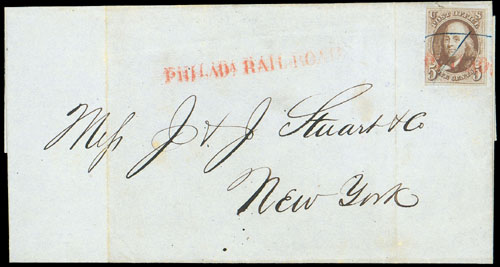 POST OFFICE
5 5
FIVE CENTS
PHILADA RAIL ROAD
Mess J & J Stuart & Co
New York